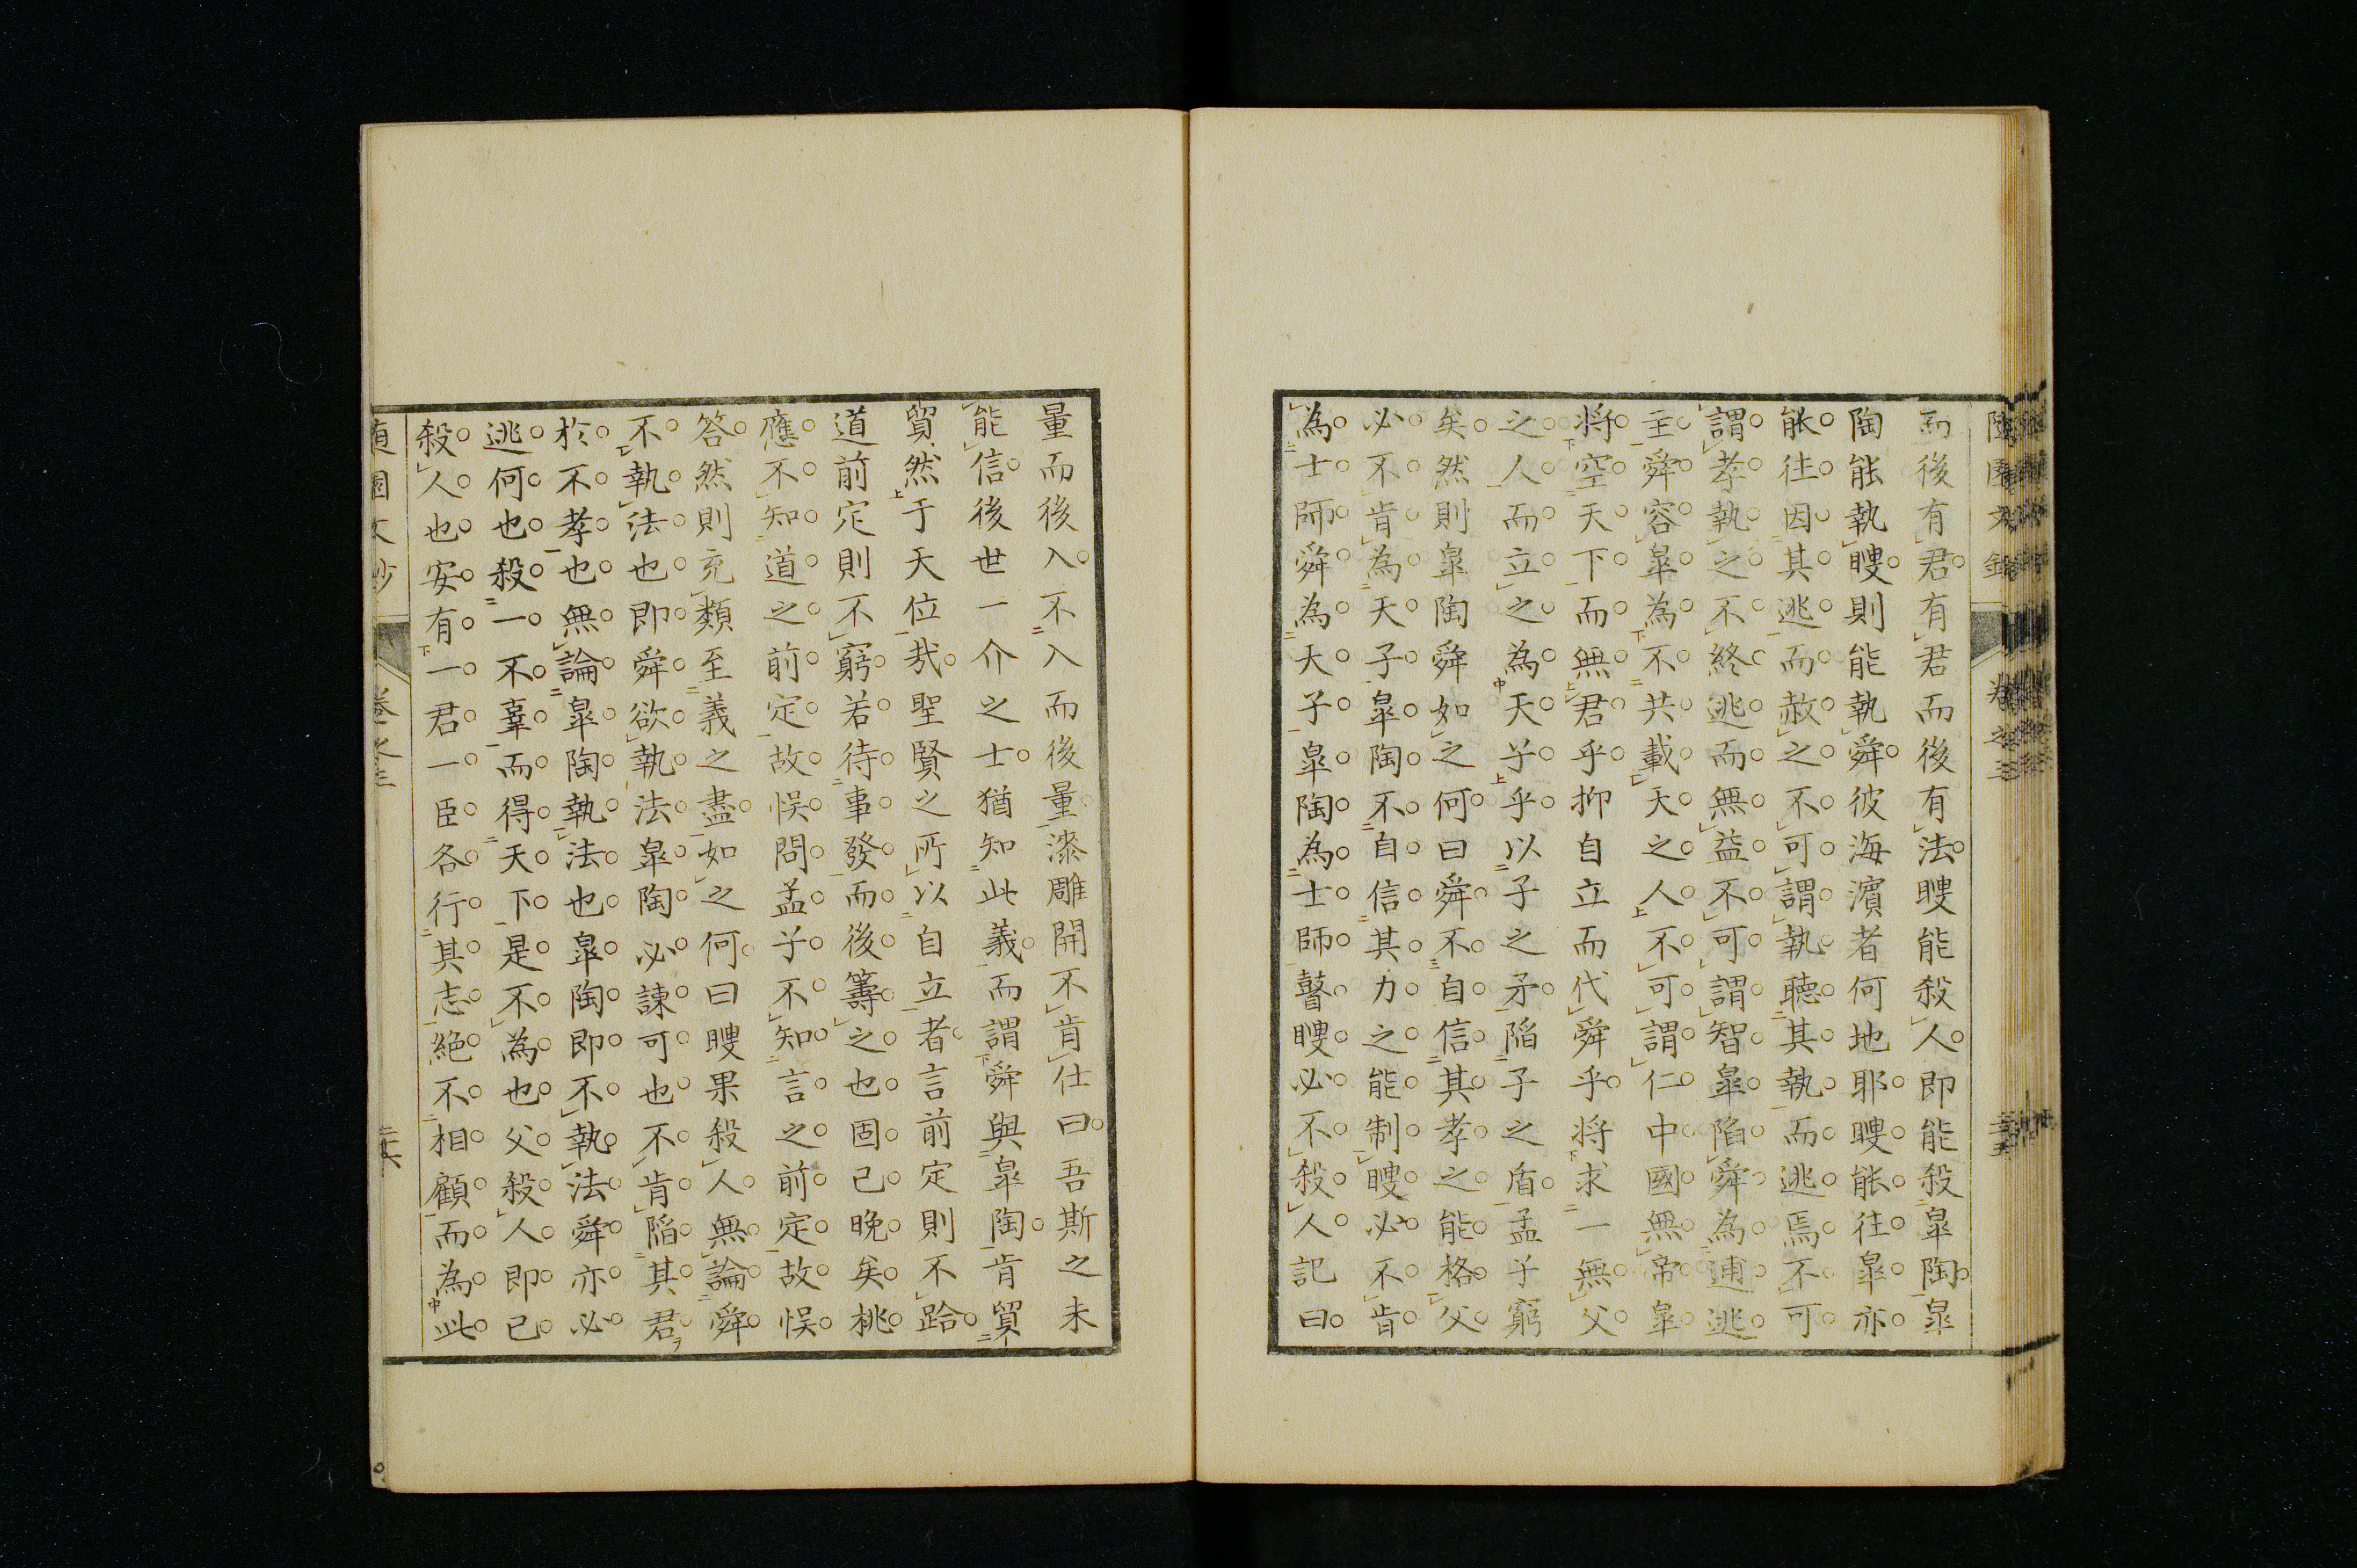 隨園文鈔 卷之三 三十五
而後有君有君而後有法瞍能殺人即能殺皐陶皐
陶能執瞍則能執舜彼海濱者何地耶瞍能往皐亦
能往因其逃而赦之不可謂執聽其執而逃焉不可
謂孝執之不終逃而無益不可謂智皐陷舜為逋逃
主舜容皐為不共載天之人不可謂仁中國無帝皐
將空天下而無君乎抑自立而代舜乎將求一無父
之人而立之為天子乎以子之矛陷子之盾孟子窮
矣然則皐陶舜如之何曰舜不自信其孝之能格父
必不肯為天子皐陶不自信其力之能制瞍必不肯
為士師舜為天子皐陶為士師瞽瞍必不殺人記曰
量而後入不入而後量漆雕開不肯仕曰吾斯之未
能信後世一介之士猶知此義而謂舜與皐陶肯貿
貿然于天位哉聖賢之所以自立者言前定則不跲
道前定則不窮若待事發而後籌之也固已晚矣桃
應不知道之前定故悞問孟子不知言之前定故悞
答然則充類至義之盡如之何曰瞍果殺人無論舜
不執法也即舜欲執法皐陶必諫可也不肯陷其君
於不孝也無論皐陶執法也皐陶即不執法舜亦必
逃何也殺一不辜而得天下是不為也父殺人即己
殺人也安有一君一臣各行其志絕不相顧而為此
隨園文鈔 卷之三